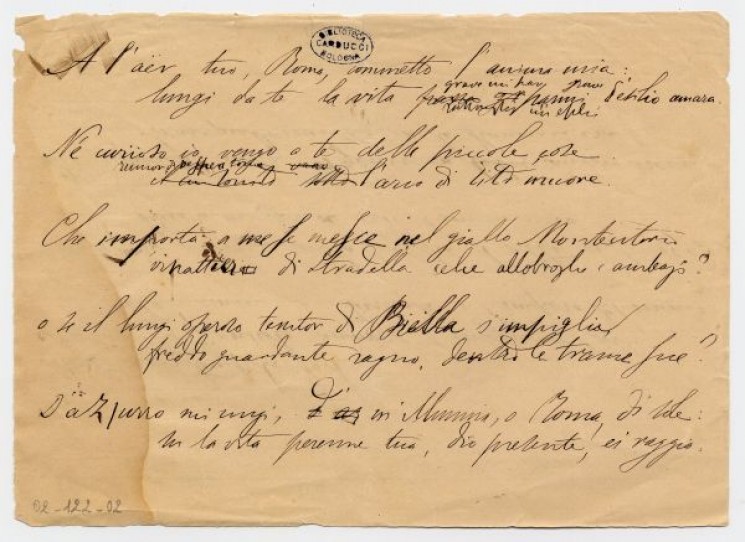 BIBLIOTECA
CARDUCCI
BOLOGNA
A l'aër tuo, Roma, commetto l'anima mia:
grave mi par
lungi da te la vita d'esilio amara.
Nè curioso io vengo a te delle piccole cose
l'arco di tito
Che importa a me se mesce nel giallo Montecitorio
vinattier di Stradella celie allobroghe e ambagi?
o se il lungi operoso tessitor di Biella s'impiglia
freddo guardante ragno, dentro le trame sue?
D'azzurro mi ungi, mi illumina, o Roma, di sole:
in la vita perenne tua, dio presente, ei raggia.
02-122-02